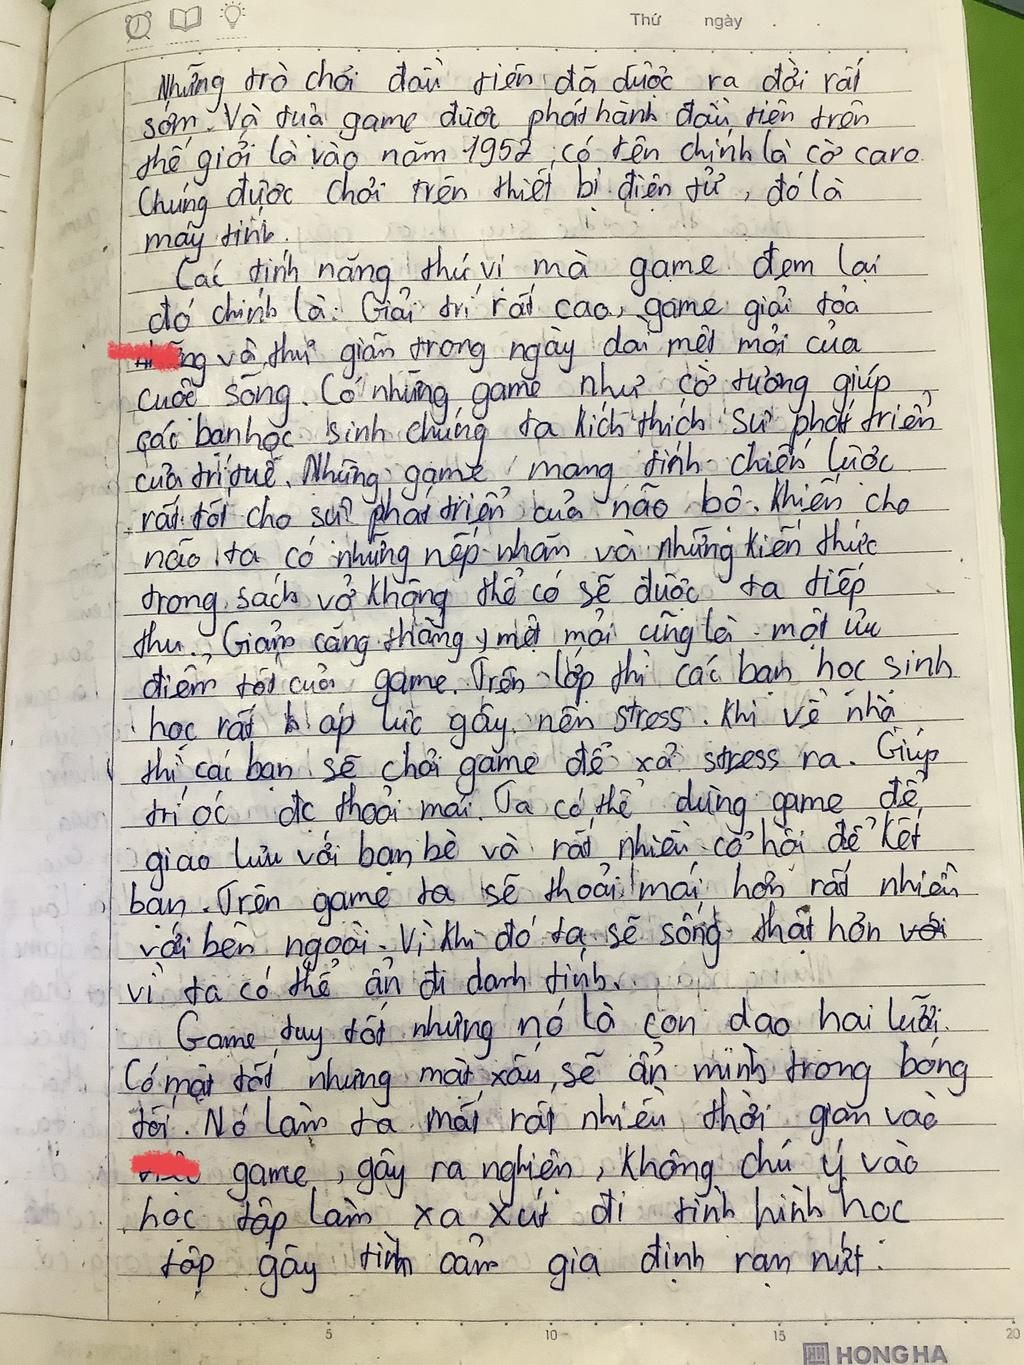 Thứ ngày . .
Những trò chơi đầu tiên đã được ra đời rất
sớm. Và tựa game được phát hành đầu tiên trên
thế giới là vào năm 1952, có tên chính là cờ caro.
Chúng được chơi trên thiết bị điện tử, đó là
máy tính.
Các tính năng thú vị mà game đem lại
đó chính là: Giải trí rất cao, game giải tỏa
và thư giãn trong ngày dài mệt mỏi của
cuộc sống. Có những game như cờ tướng giúp
các bạn học sinh chúng ta kích thích sự phát triển
của trí tuệ. Những game mang tính chiến lược
rất tốt cho sự phát triển của não bộ. Khiến cho
não ta có những nếp nhăn và những kiến thức
trong sách vở không thể có sẽ được ta tiếp
thu. Giảm căng thẳng, mệt mỏi cũng là một ưu
điểm tốt của game. Trên lớp thì các bạn học sinh
học rất áp lực gây nên stress. Khi về nhà
thì các bạn sẽ chơi game để xả stress ra. Giúp
trí óc đc thoải mái. Ta có thể dùng game để
giao lưu với bạn bè và rất nhiều cơ hội để kết
bạn. Trên game ta sẽ thoải mái hơn rất nhiều
với bên ngoài. Vì khi đó ta sẽ sống thật hơn với
vì ta có thể ẩn đi danh tính.
Game tuy tốt nhưng nó là con dao hai lưỡi.
Có mặt tốt nhưng mặt xấu sẽ ẩn mình trong bóng
tối. Nó làm ta mất rất nhiều thời gian vào
game, gây ra nghiện, không chú ý vào
học tập làm xa xút đi tình hình học
tập gây tình cảm gia định rạn nứt.
5 10 15 20
HONG HA